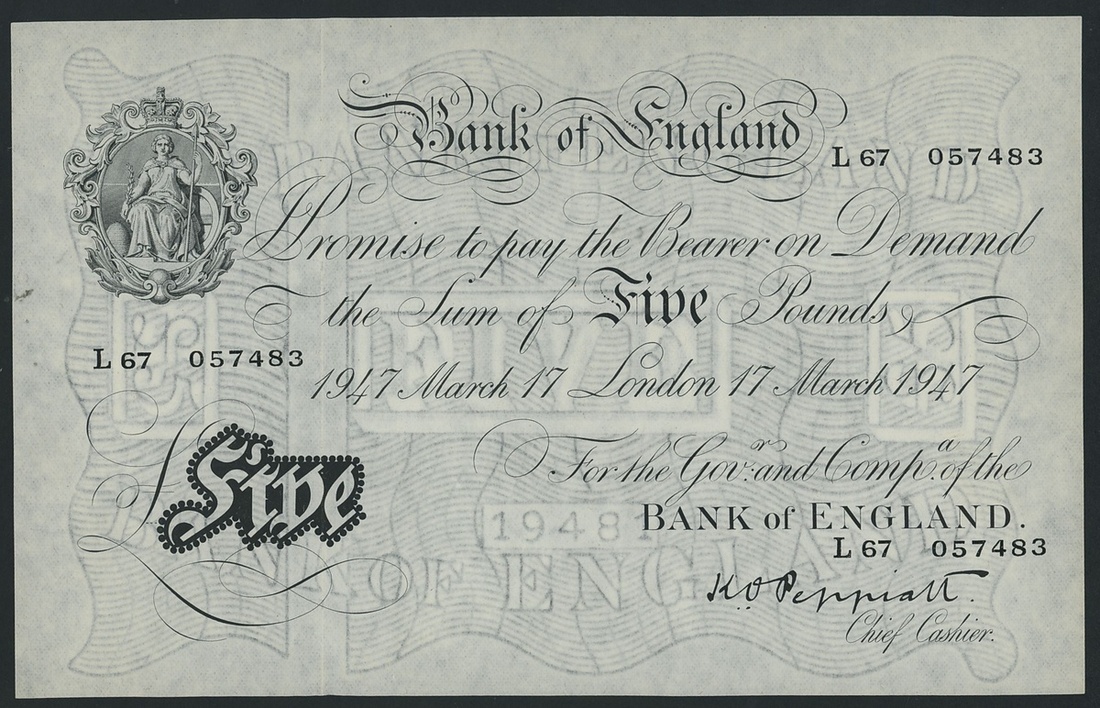 Bank of England
L 67 057483
I Promise to pay the Bearer on Demand
the Sum of Five Pounds
L 67 057483
1947 March 17 London 17 March 1947
For the Govr: and Compa: of the
BANK of ENGLAND.
£Five
L 67 057483
K O Peppiatt.
Chief Cashier.
BANK OF ENGLAND
£5
FIVE
£5
1948
BANK OF ENGLAND